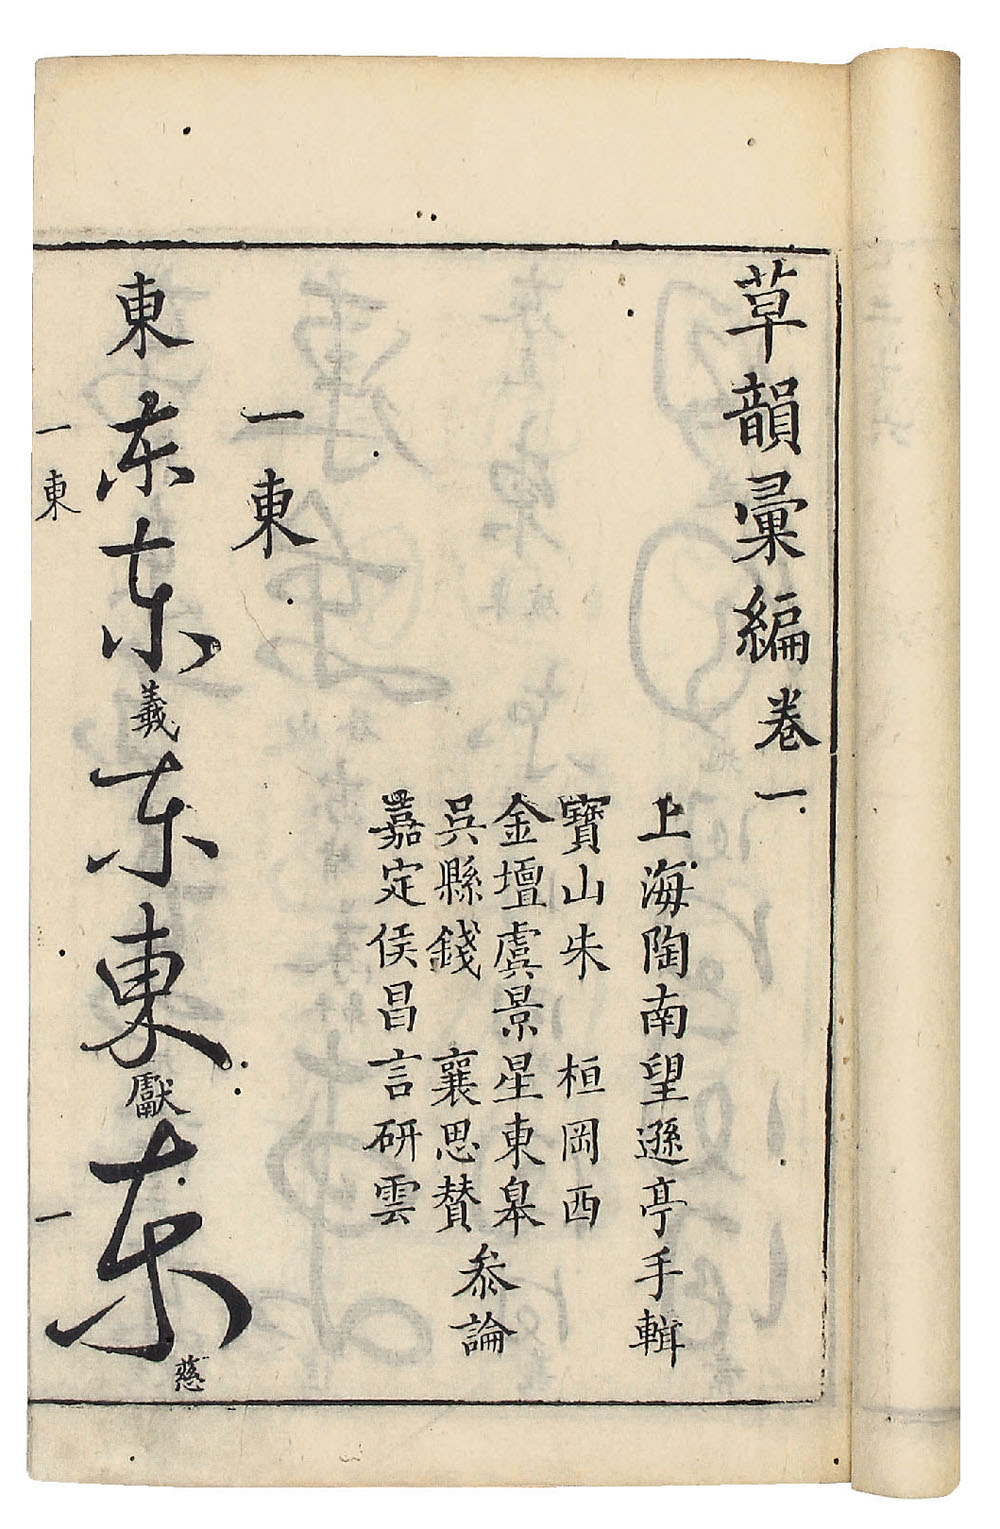 草韻彙編卷一
上海陶南望遜亭手輯
寶山朱 桓岡西
金壇虞景星東皋
吳縣錢 襄思贊
嘉定侯昌言研雲
參論
一東
東 东 东 羲 东 東 獻 东 慈
一東
一